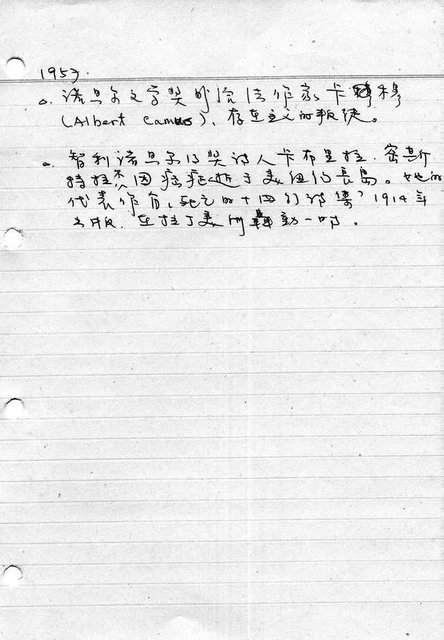 1957.
○. 諾貝尔文学奨頒給法作家卡穆
(Albert Camus)、存在主义的叛徒。
○. 智利諾貝尔得奨詩人卡布里拉．密斯
特拉尔因癌症逝于美纽约長島。她的
代表作有《死亡的十四行詩集》1914年
出版．在拉丁美洲轟動一时。